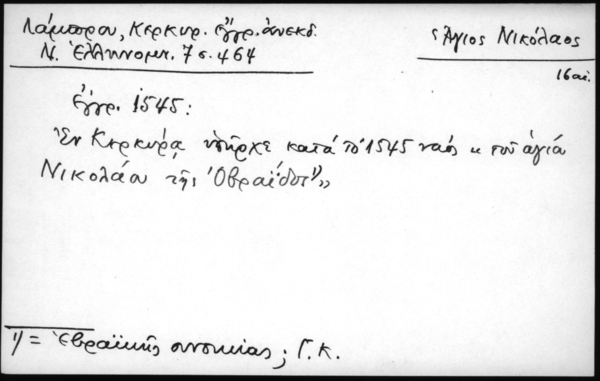 Λάμπρου, Κερκυρ. ἔγγρ. ἀνεκδ.
Ν. Ἑλληνομν. 7 σ. 464
Ἅγιος Νικόλαος
16 αἰ.
ἔγγρ. 1545:
Ἐν Κερκύρᾳ ὑπῆρχε κατὰ τὸ 1545 ναὸς « τοῦ ἁγίου
Νικολάου τῆς Ὀβραΐδος¹⁾»
1) = Ἑβραϊκῆς συνοικίας; Γ.Κ.